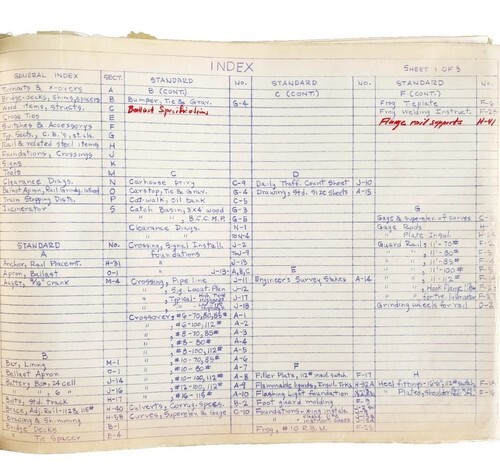 INDEX
SHEET 1 OF 3
GENERAL INDEX SECT.
Turnouts & X-overs A
Bridge-decks, Shims, spacers B
Wood items, structs. C
Cross Ties E
Switches & Accessorys F
Tr. Sects., C.B.'s, et als. G
Rail & related steel items H
Foundations, Crossings J
Signs K
Tools M
Clearance Diags. N
Ballast Apron, Rail Grndg. O
Train Stopping Dists. P
Incinerator S
STANDARD No.
A
Anchor, Rail Placemt. H-31
Apron, Ballast O-1
Auger, 9/16" crank M-4
B
Bar, Lining M-1
Ballast Apron O-1
Battery Box, 24 cell J-14
" " , 6 " J-16
Bolts, Std. track H-17
Brace, Adj. Rail-112# & 115# H-40
Bracing & Shimming H-58
Bridge Decks B-1
" Tie Spacer F-4
STANDARD No.
B (CONT.)
Bumper, Tie & Grav. G-4
Ballast Specifications
C
Carhouse Privy C-9
Carstop, Tie & Grav. G-4
Cat-walk, oil tank C-5
Catch Basin, 3x4 wood G-3
" " , B.C.C.M.P. G-5
Clearance Diags. N-1
" " TO N-4
Crossing, Signal Install. J-2
foundations TO J-9
" " J-13
Crossing, Pipe line J-11
" , Sig. Locat. Plan J-12
" , Typical J-17
" , " J-18
Crossover, #6-70,80,85# A-1
" , #6-100,112# A-2
" , #8-70,85# A-3
" , #8-80# A-4
" , #8-100,112# A-5
" , #10-70,85# A-6
" , #10-80# A-7
" , #10-100,112# A-8
" , #16-100,112# A-9
" , #20-100,112# A-10
" , #16-115# A-11
Culverts, Corrug. Specs. B-2
Curves, Superelev. & Gage C-10
STANDARD No.
C (CONT.)
D
Daily Traff. Count Sheet J-10
Drawing, Std. size Sheets A-15
E
Engineer's Survey Stakes A-14
F
Filler Plate, 112# insul. switch F-17
Flammable liquids, Engul. Tnks. H-32A
Flashing Light Foundation
Foot guard molding F-9
Foundations
Frog, #10 R.B.M. F-23
STANDARD
F (CONT.)
Frog Template F-
Frog Welding Instruct. F-25
Flange rail supports H-41
G
Gage & superelev. of curves C-1
Gage Rods H-
" Plate Insul. F-
Guard Rail, 11'-70# F-
" " , 11'-80# F-
" " , 11'-85# F-
" " , 11'-100# F-
" " , 11'-112# F-
" " , Hook flange
" " for Tre. lubricator F-
Grinding wheels for rail J-2
H
Heel fittings
" Plates, Shoulder